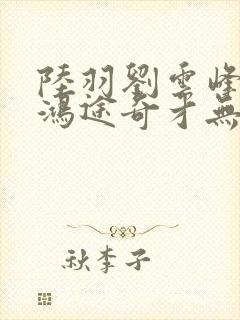 陸羽劉雲峰
鴻途奇才無
秋李子